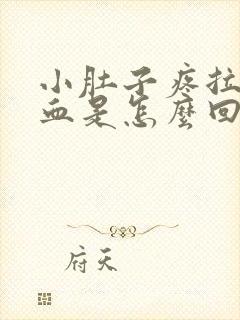 小肚子疼拉
血是怎麼回
府天